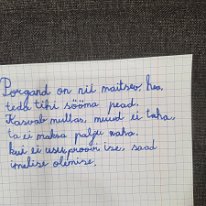 Porgand on nii maitsev, hea,
teda tihti sööma pead.
Kasvab mullas, muud ei taha,
ta ei maksa palju raha.
kui ei usu, proovi ise, saad
imelise olemise.